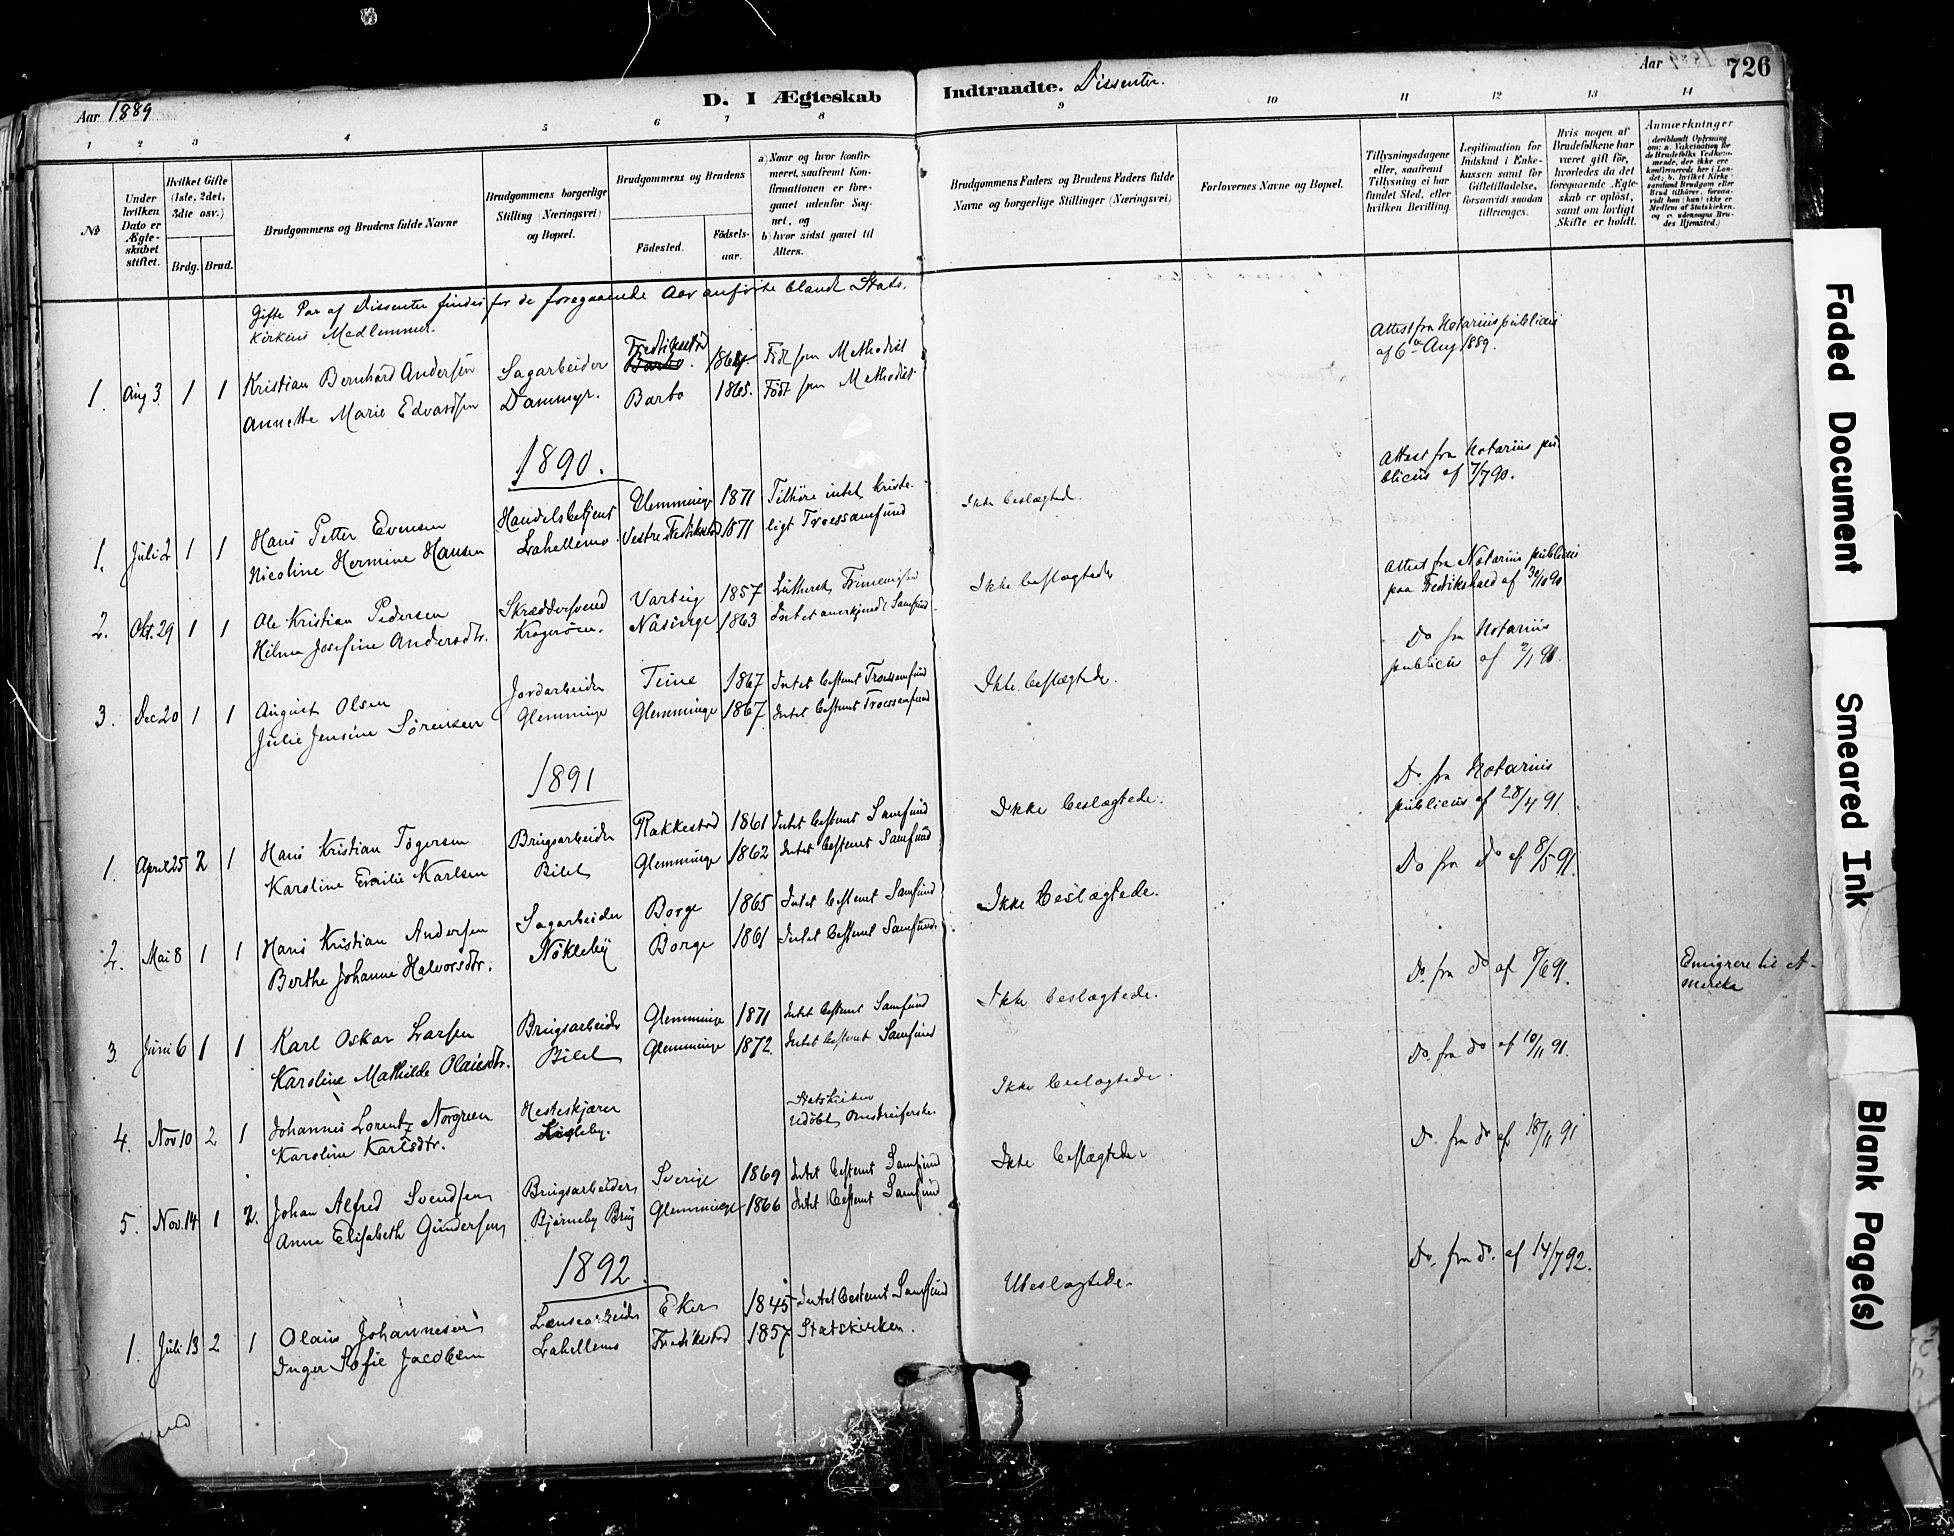 Aar 1889
D. I Ægteskab Indtraadte. Dissenter.
Aar
726
1 2 3 4 5 6 7 8 9 10 11 12 13 14
No
Under hvilken Dato er Ægteskabet stiftet.
Hvilket Gifte (1ste, 2det, 3die osv.)
Brdg. Brud.
Brudgommens og Brudens fulde Navne
Brudgommens borgerlige Stilling (Næringsvei) og Bopæl.
Brudgommens og Brudens
Födested. Födselsaar.
a) Naar og hvor konfirmeret, saafremt Konfirmationen er foregaaet udenfor Sognet, og
b) hvor sidst gaaet til Alters.
Brudgommens Faders og Brudens Faders fulde Navne og borgerlige Stillinger (Næringsvei)
Forlovernes Navne og Bopæl.
Tillysningsdagene eller, saafremt Tillysning ei har fundet Sted, efter hvilken Bevilling.
Legitimation for Indskud i Enkekassen samt for Giftetilladelse, forsaavidt saadan tiltrænges.
Hvis nogen af Brudefolkene har været gift för, hvorledes da det foregaaende Ægteskab er oplöst, samt om lovligt Skifte er holdt.
Anmærkninger
(deriblandt Oplysning om: a. Vakcination for de Brudefolks Vedkommende, der ikke ere konfirmerede her i Landet; b. hvilket Kirkesamfund Brudgom eller Brud tilhörer, forsaavidt han (hun) ikke er Medlem af Statskirken, og c. udensogns Brudes Hjemsted.)
Gifte Par af Dissenter findes for de foregaaende Aar anförte blandt Stats.
Kirkens Medlemmer.
1. Aug 3. 1 1 Kristian Bernhard Andersen Sagarbeider Fredrikstad Barbo. 1864 Födt som Methodist Attest fra Notarius publicus af 6te Aug 1889.
Annette Marie Edvardsen Dammyr. Barbo 1865. Födt som Methodist
1890.
1. Juli 2 1 1 Hans Petter Evensen Handelsbetjent Glemminge 1871 Tilhöre intet kriste- Ikke beslægtede. Attest fra Notarius publicus af 7/7 90.
Nicoline Hermine Hansen Lahellemo. Vestre Fredrikstad 1871 ligt Troessamfund
2. Okt. 29 1 1 Ole Kristian Pedersen Skræddersvend Varteig 1857 Luthersk Frimenighed Ikke beslægtede Attest fra Notarius publicus paa Fredrikshald af 30/10 90
Hilma Josefine Andersdtr. Krageröen. Näsinge 1863 Intet anerkjendt Samfund
3. Dec 20 1 1 August Olsen Jordarbeider Tune 1867 Intet bestemt Troessamfund Ikke beslægtede. Do fra Notarius publicus af 2/1 91.
Julie Jensine Sörensen Glemminge Glemminge 1867 Intet bestemt Troessamfund
1891
1. April 25 2 1 Hans Kristian Tögersen Brugsarbeider Rakkestad 1861 Intet bestemt Samfund Ikke beslægtede. Do fra Notarius publicus af 28/4 91.
Karoline Emilie Karlsen Bilet Glemminge 1862 Intet bestemt Samfund
2. Mai 8 1 1 Hans Kristian Andersen Sagarbeider Borge 1865 Intet bestemt Samfund Ikke beslægtede. Do fra do af 8/5 91.
Berthe Johanne Halvorsdtr. Nökleby Borge 1861 Intet bestemt Samfund.
3 Juni 6 1 1 Karl Oskar Larsen Brugsarbeider Glemminge 1871 Intet bestemt Samfund Ikke beslægtede. Do. fra do af 8/6 91. Emigrere til A-merika
Karoline Mathilde Olaisdtr. Bilet Glemminge 1872. Intet bestemt Samfund
4. Nov 10 2 1 Johannes Lorentz Norgreen Hesteskjærer Statskirken Ikke beslægtede. Do. fra do af 10/11 91.
Karoline Karlsdtr. Udöbt Omstreiferske.
5. Nov. 14 1 2. Johan Alfred Svendsen Brugsarbeider Sverige 1869 Intet bestemt Samfund Ikke beslægtede. Do. fra do af 18/11 91
Anna Elisabeth Gundersen Bjørneby Brug Glemminge 1866 Intet bestemt Samfund
1892.
1. Juli 13 2 1 Olaus Johannesen Lænsearbeider Eker 1845 Intet bestemt Samfund Ubeslægtede. Do. fra do. af 14/7 92.
Inger Sofie Jacobsen Lahellemo Fredrikstad 1857 Statskirken.
Faded Document
Smeared Ink
Blank Page(s)